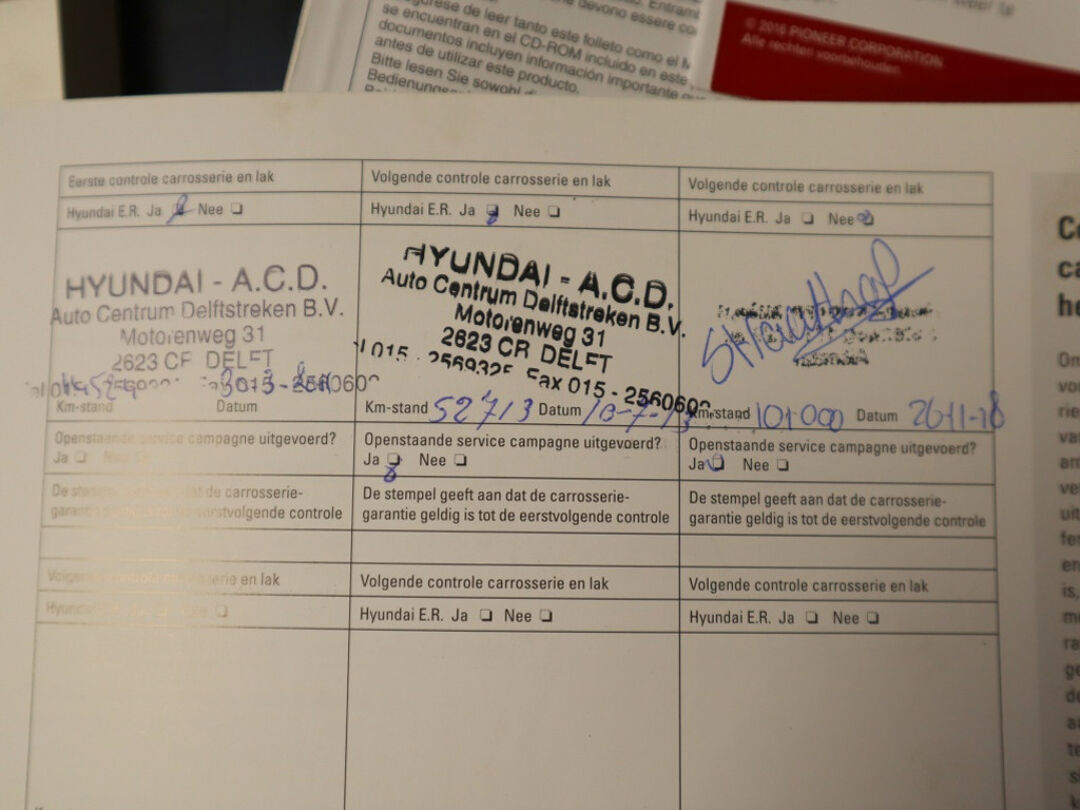 devono essere co
gúrese de leer tanto este folleto como el M
se encuentran en el CD-ROM incluido en este
documentos incluyen información importante
antes de utilizar este producto.
Bitte lesen Sie sowohl
© 2016 PIONEER CORPORATION
Alle rechten voorbehouden.
Eerste controle carrosserie en lak
Hyundai E.R. Ja Nee
HYUNDAI - A.C.D.
Auto Centrum Delftstreken B.V.
Motorenweg 31
2623 CR DELFT
Km-stand Datum
Openstaande service campagne uitgevoerd?
Ja
De stempel dat de carrosserie-
garantie eerstvolgende controle
Volgende controle carrosserie en lak
Hyundai E.R. Ja Nee
HYUNDAI - A.C.D.
Auto Centrum Delftstreken B.V.
Motorenweg 31
2623 CR DELFT
015 - 2569325 Fax 015 - 2560602
Km-stand 52713 Datum 10-7-13
Openstaande service campagne uitgevoerd?
Ja Nee
De stempel geeft aan dat de carrosserie-
garantie geldig is tot de eerstvolgende controle
Volgende controle carrosserie en lak
Hyundai E.R. Ja Nee
Km-stand 101000 Datum 26-11-18
Openstaande service campagne uitgevoerd?
Ja Nee
De stempel geeft aan dat de carrosserie-
garantie geldig is tot de eerstvolgende controle
Volgende controle carrosserie en lak
Hyundai
Volgende controle carrosserie en lak
Hyundai E.R. Ja Nee
Volgende controle carrosserie en lak
Hyundai E.R. Ja Nee